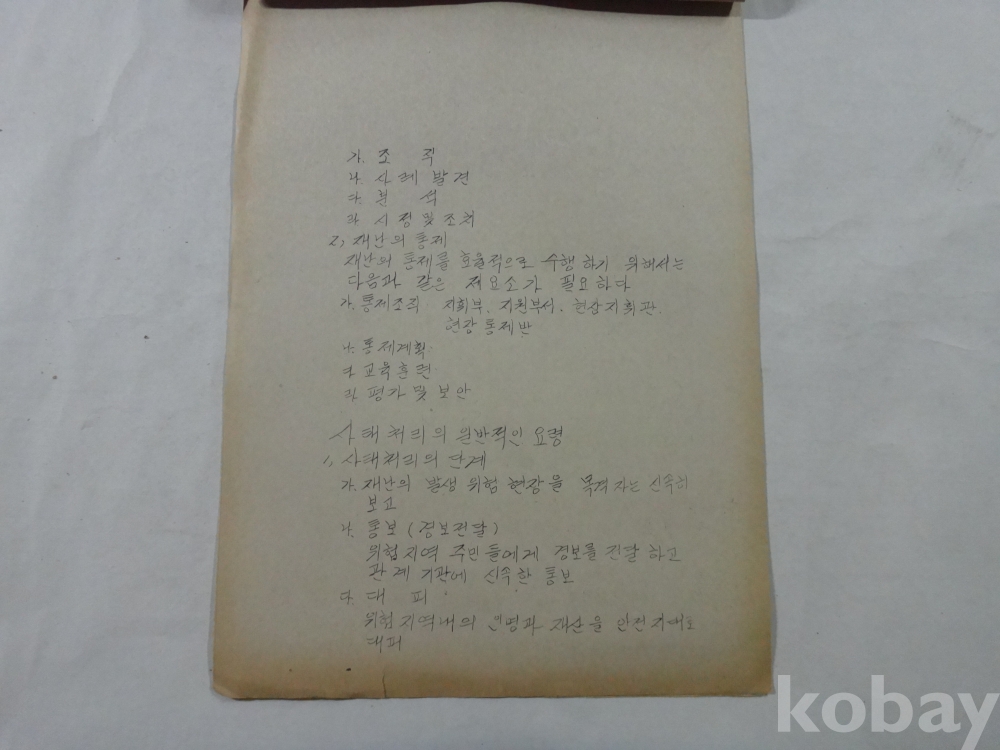 가. 조 직
나. 사례 발견
다. 분 석
라. 시정 및 조치
2, 재난의 통제
재난의 통제를 효율적으로 수행하기 위해서는
다음과 같은 제요소가 필요하다
가. 통제조직 지휘부. 지원부서. 현장지휘관.
현장통제반
나. 통제계획.
다. 교육훈련.
라. 평가 및 보안
사태처리의 일반적인 요령
1, 사태처리의 단계
가. 재난의 발생 위험 현장을 목격자는 신속히
보고
나. 통보 (경보전달)
위험지역 주민들에게 경보를 전달하고
관계기관에 신속한 통보
다. 대 피
위험지역내의 인명과 재산을 안전지대로
대피
kobay